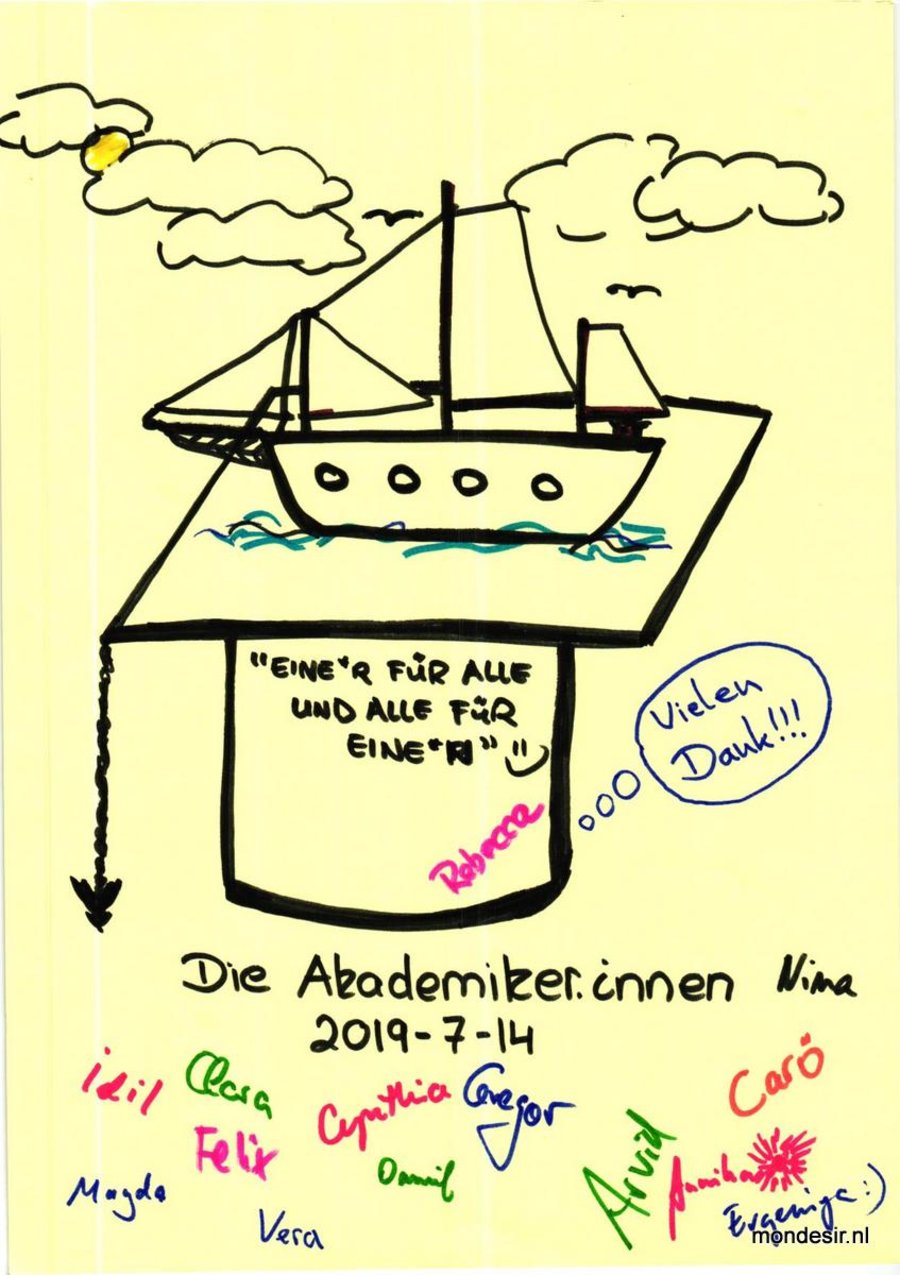 "EINE*R FÜR ALLE
UND ALLE FÜR
EINE*N" :)
Vielen
Dank!!!
Rebecca
Die Akademiker.innen Nina
2019-7-14
idil Clara Cynthia Gregor Caro
Felix Daniel Arvid Annika
Magda Vera :)
mondesir.nl